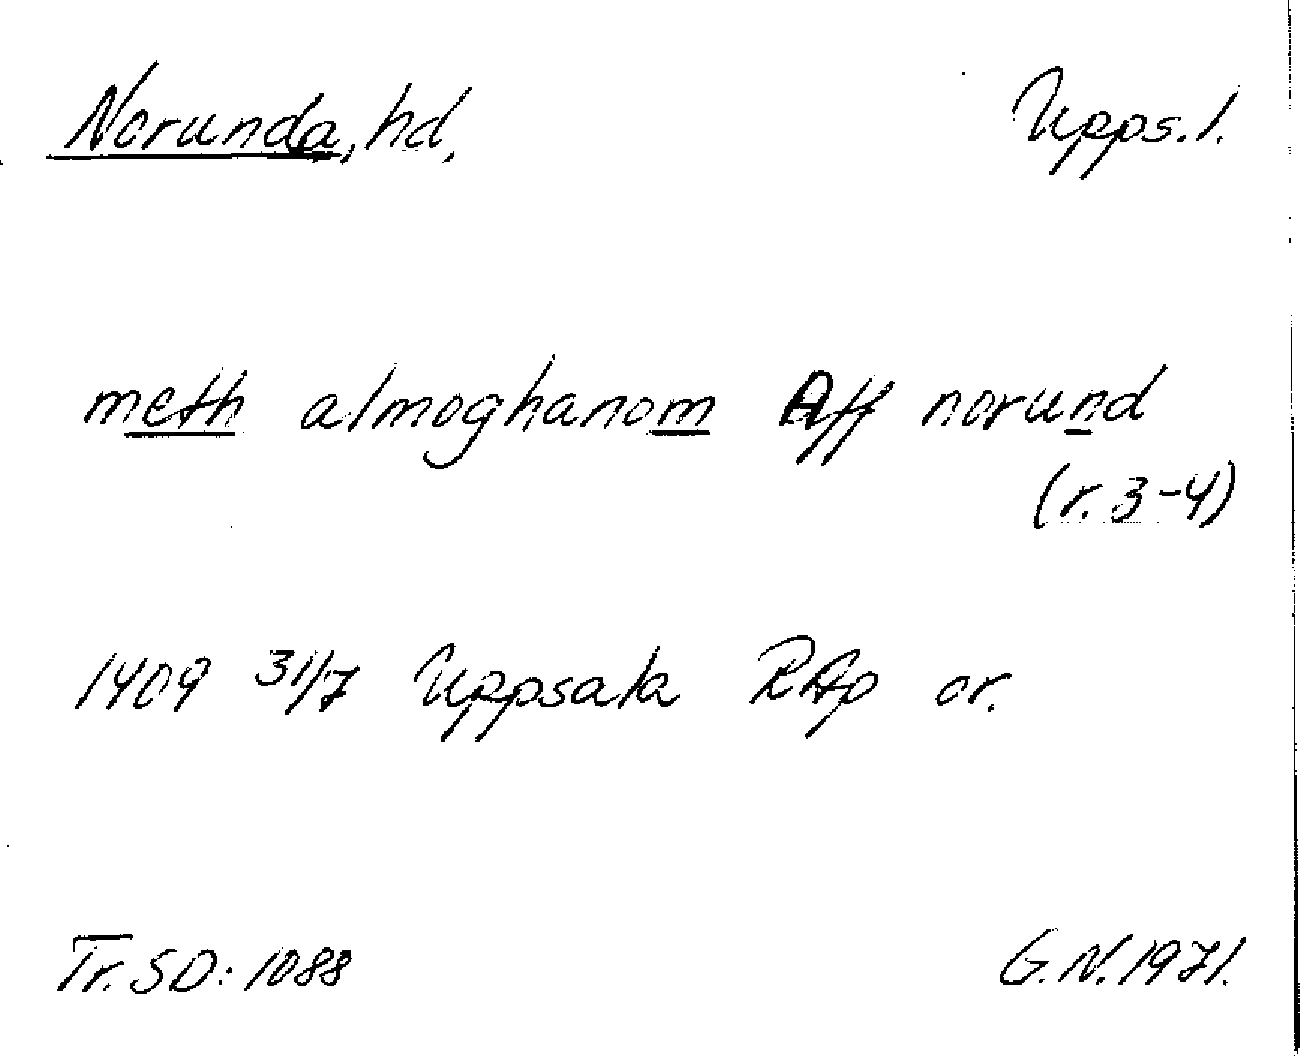 Norunda, hd, Upps. l.
meth almoghanom Aff norund
(r. 3-4)
1409 31/7 Uppsala RAp or.
Tr. SD: 1088 G.N. 1971.